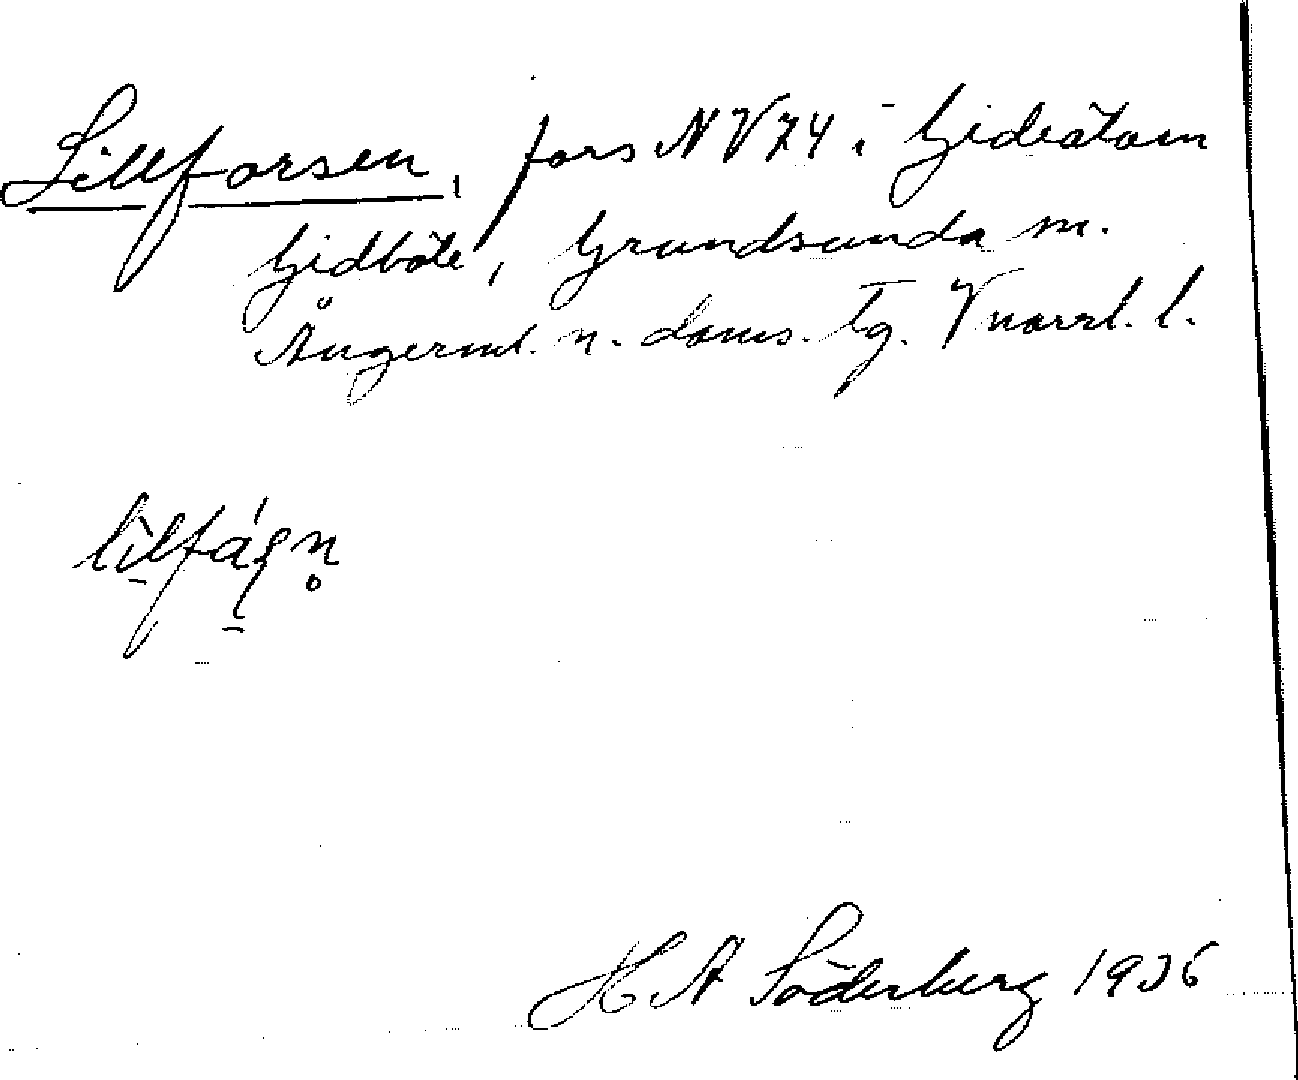 Lillforsen, fors NV74 i Gideåtom
Gidböle, Grundsunda sn.
Ångerml. n. doms. tg. Vnorrl. l.
H A Söderberg 1936